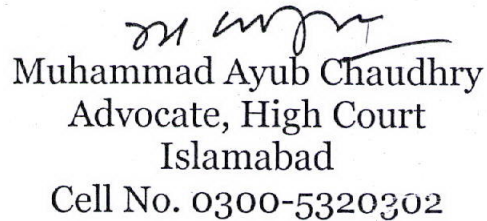 Muhammad Ayub Chaudhry
Advocate, High Court
Islamabad
Cell No. 0300-5320302